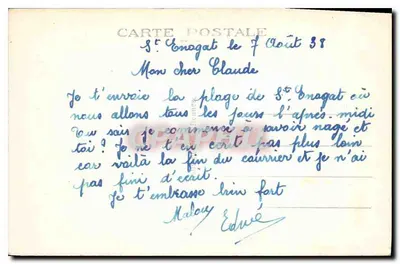 CARTE POSTALE
St Enogat le 7 Août 38
Mon cher Claude
Je t'envoie la plage de St. Enogat où
nous allons tous les jours l'après-midi
Tu sais je commence a savoir nagé et
toi? Je ne t'en écrit pas plus loin
car voilà la fin du courrier et je n'ai
pas fini d'écrit.
Je t'embrasse bien fort